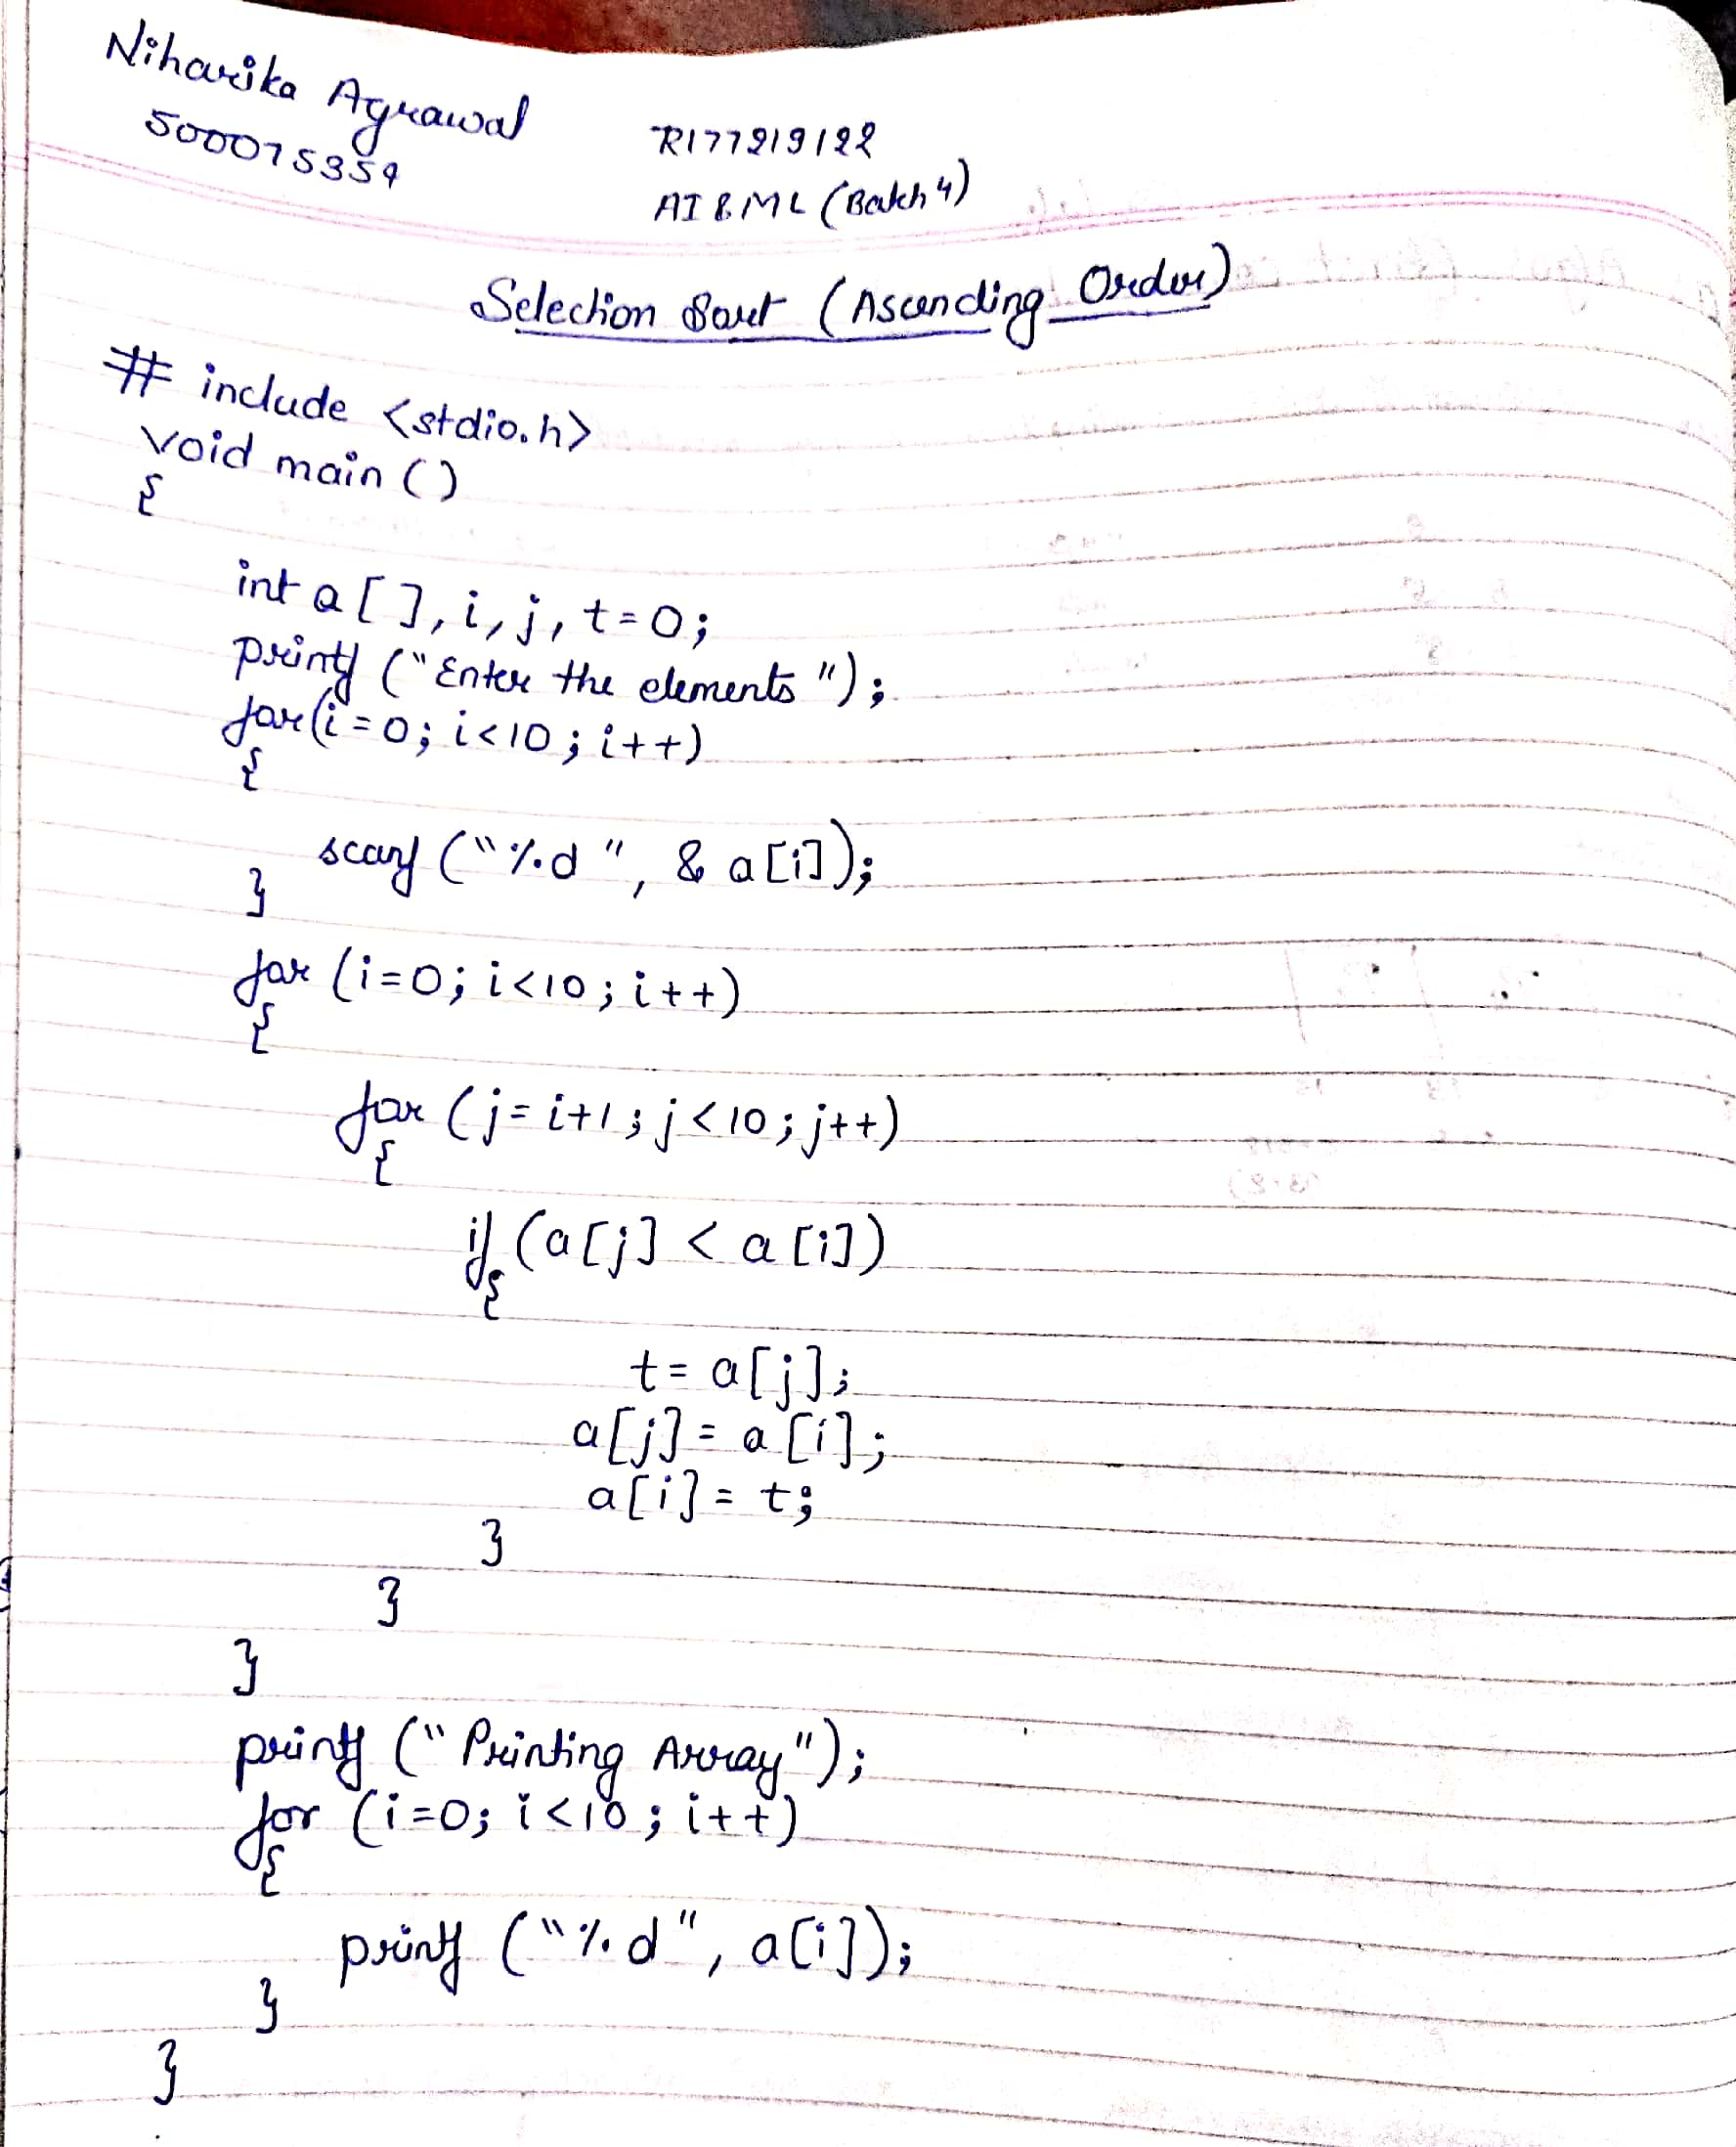 Niharika Agrawal
500075359
R177219122
AI & ML (Batch 4)
Selection Sort (Ascending Order)
# include <stdio.h>
void main ()
{
int a [ ], i, j, t=0;
printf ("Enter the elements ");
for(i=0; i<10; i++)
{
scanf ("%d ", & a[i]);
}
for (i=0; i<10; i++)
{
for (j=i+1; j<10; j++)
{
if (a[j] < a[i])
{
t= a[j];
a[j] = a[i];
a[i] = t;
}
}
}
printf (" Printing Array");
for (i=0; i<10; i++)
{
printf ("%d", a[i]);
}
}